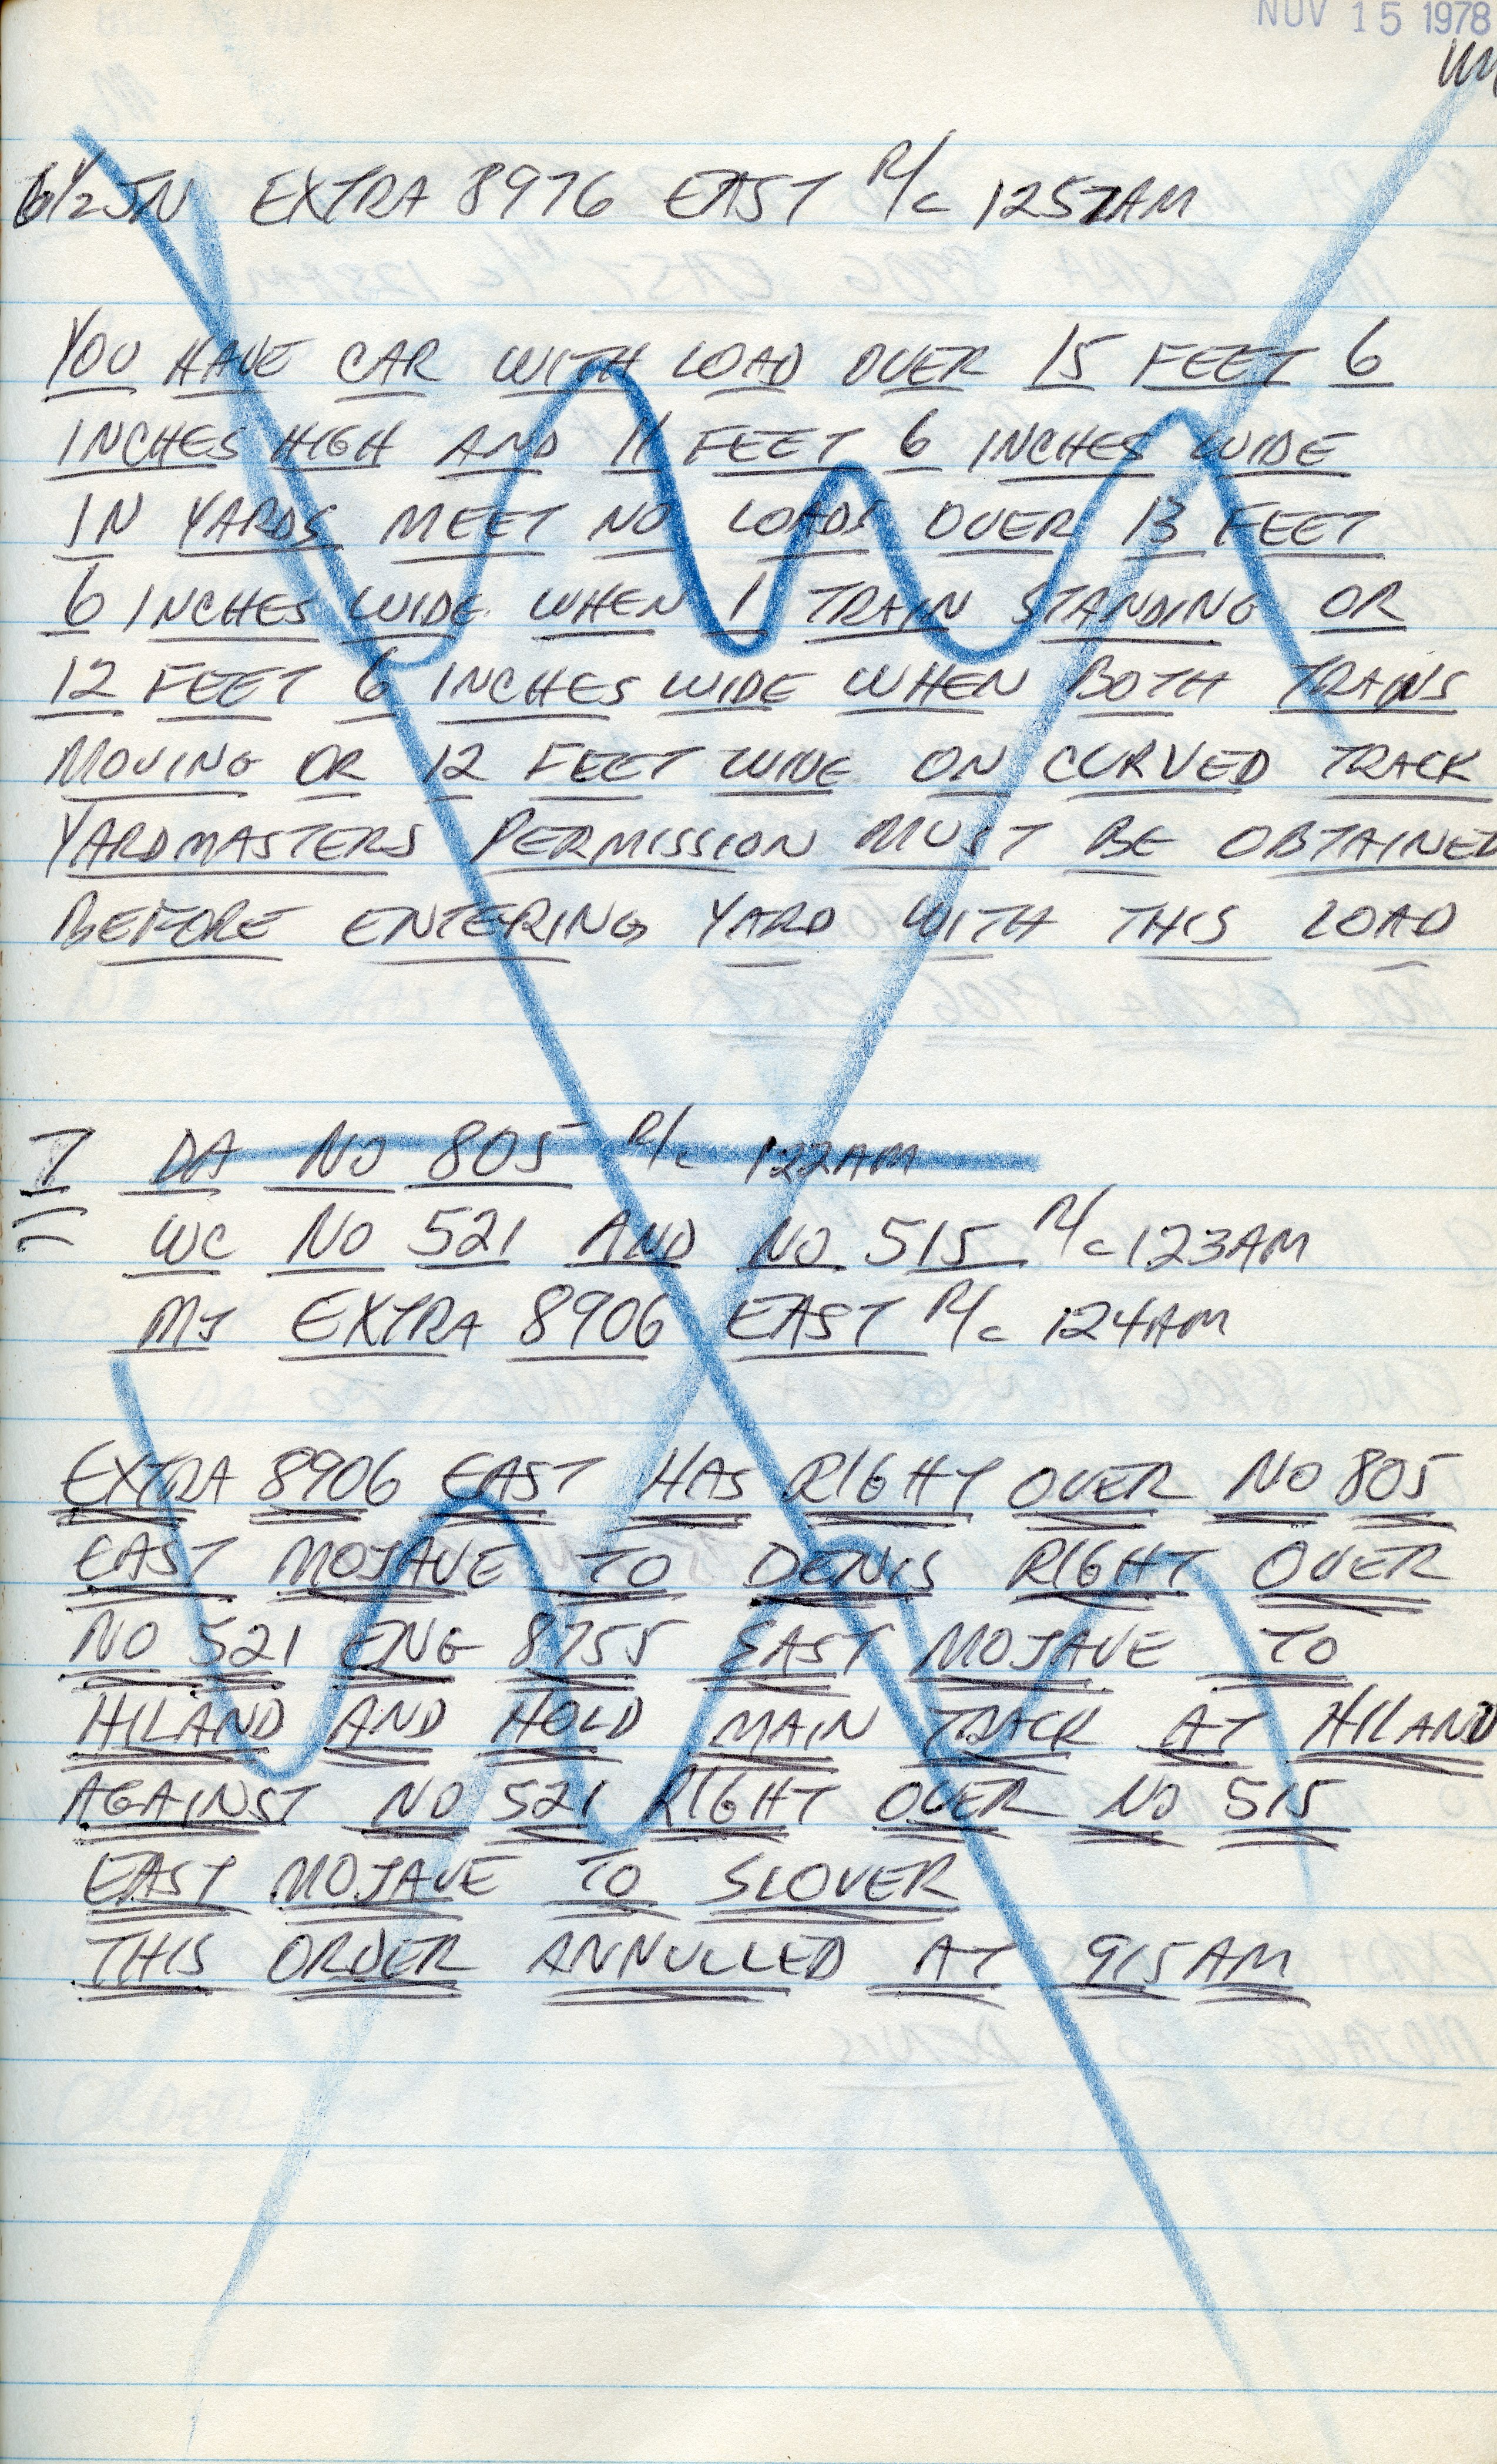 NOV 15 1978
6 1/2 JN EXTRA 8976 EAST R/C 1257AM
YOU HAVE CAR WITH LOAD OVER 15 FEET 6
INCHES HIGH AND 11 FEET 6 INCHES WIDE
IN YARDS MEET NO LOADS OVER 13 FEET
6 INCHES WIDE WHEN 1 TRAIN STANDING OR
12 FEET 6 INCHES WIDE WHEN BOTH TRAINS
MOVING OR 12 FEET WIDE ON CURVED TRACK
YARDMASTERS PERMISSION MUST BE OBTAINED
BEFORE ENTERING YARD WITH THIS LOAD
7 DA NO 805 R/C 122AM
WC NO 521 AND NO 515 R/C 123AM
MJ EXTRA 8906 EAST R/C 124AM
EXTRA 8906 EAST HAS RIGHT OVER NO 805
EAST MOJAVE TO DENIS RIGHT OVER
NO 521 ENG 8755 EAST MOJAVE TO
HILAND AND HOLD MAIN TRACK AT HILAND
AGAINST NO 521 RIGHT OVER NO 515
EAST MOJAVE TO SLOVER
THIS ORDER ANNULLED AT 915AM